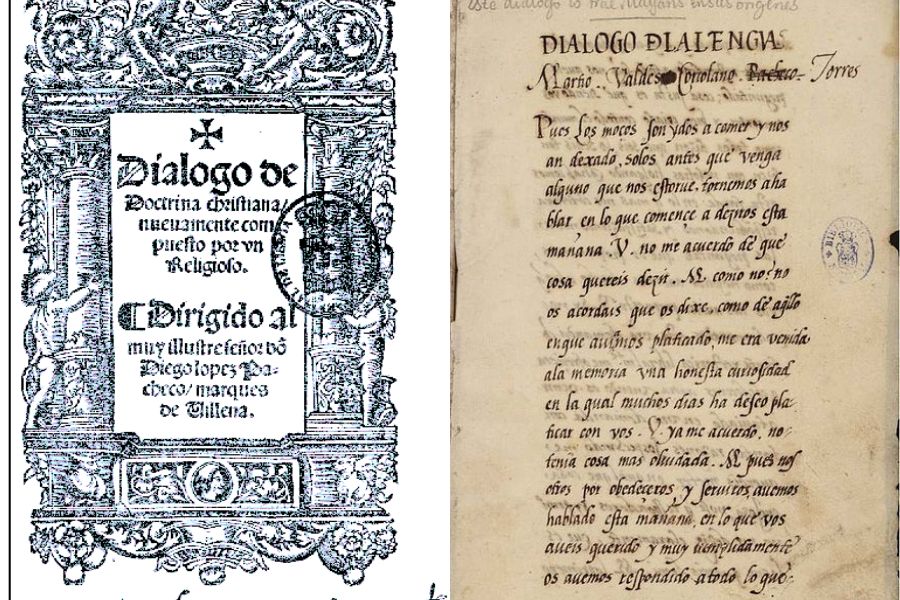 ✠
Dialogo de
Doctrina christiana/
nueuamente com
puesto por vn
Religioso.
¶Dirigido al
muy illustre señor dō
Diego lopez Pa-
checo/marques
de Uillena.
este dialogo lo trae Mayans en sus origenes
DIALOGO DLALENGVA
Martio. Valdes Coriolano. Pacheco. Torres
Pues Los moços son ydos a comer y nos
an dexado, solos antes que venga
alguno que nos estorue, tornemos a ha
blar en lo que començe a deziros esta
mañana. V. no me acuerdo de que
cosa quereis dezir. M. como no? no
os acordais que os dixe, como de aq̃llo
en que auiamos platicado, me era venida
ala memoria vna honesta curiosidad
en la qual muchos dias ha deseo pla-
ticar con vos. V. ya me acuerdo, no
tenia cosa mas oluidada. M. pues nos
otros por obedeceros, y seruiros, auemos
hablado esta mañana, en lo que vos
aueis querido y muy cumplidamente
os auemos respondido a todo lo que